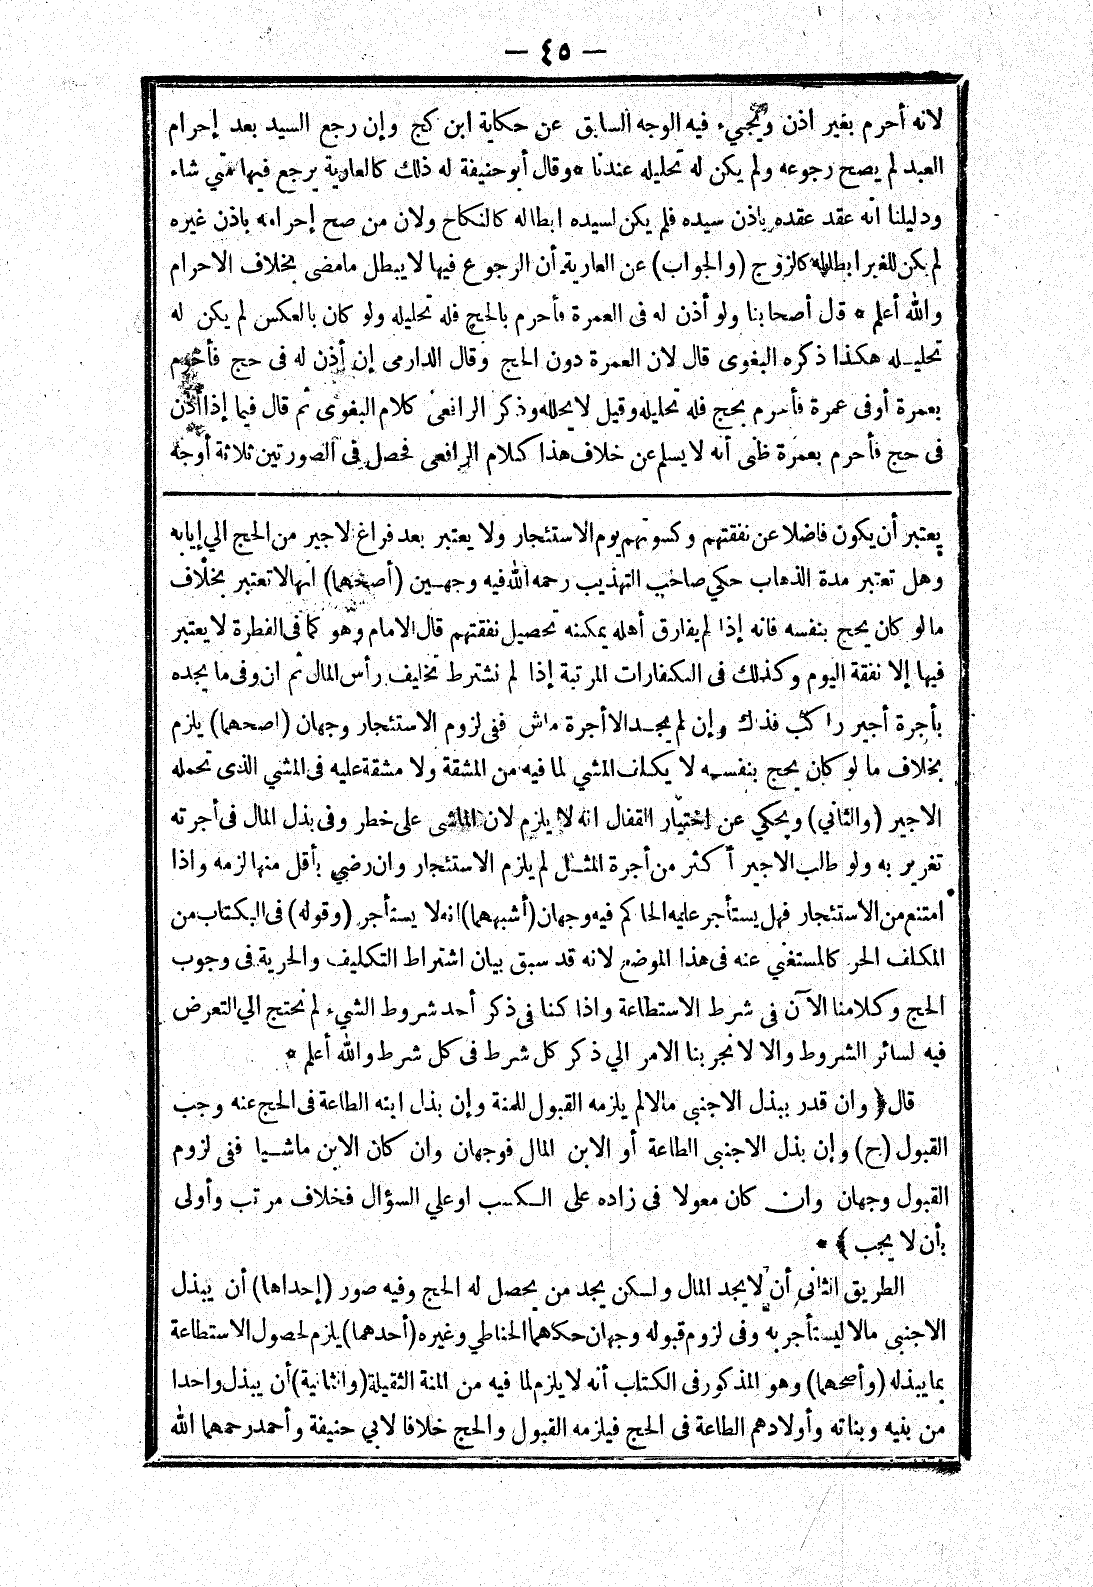 — ٤٥ —
لانه أحرم بغير اذن ويجيء فيه الوجه السابق عن حكاية ابن كج وإن رجع السيد بعد إحرام
العبد لم يصح رجوعه ولم يكن له تحليله عندنا * وقال أبو حنيفة له ذلك كالعارية يرجع فيها متي شاء
ودليلنا انه عقد عقده باذن سيده فلم يكن لسيده ابطاله كالنكاح ولان من صح إحرامه باذن غيره
لم يكن للغير ابطاله كالزوج (والجواب) عن العارية أن الرجوع فيها لا يبطل مامضى بخلاف الاحرام
والله أعلم * قال أصحابنا ولو أذن له فى العمرة فأحرم بالحج فله تحليله ولو كان بالعكس لم يكن له
تحليـله هكذا ذكره البغوى قال لان العمرة دون الحج وقال الدارمى إن أذن له فى حج فأحرم
بعمرة أو فى عمرة فأحرم بحج فله تحليله وقيل لا يحلله وذكر الرافعى كلام البغوى ثم قال فيما إذا أذن
فى حج فأحرم بعمرة ظنى أنه لا يسلم عن خلاف هذا كلام الرافعى فحصل فى الصورتين ثلاثة أوجه
يعتبر أن يكون فاضلا عن نفقتهم وكسوتهم يوم الاستئجار ولا يعتبر بعد فراغ الاجير من الحج الي إيابه
وهل تعتبر مدة الذهاب حكي صاحب التهذيب رحمه الله فيه وجهـين (أصحهما) انها لا تعتبر بخلاف
مالو كان يحج بنفسه فانه إذا لم يفارق أهله يمكنه تحصيل نفقتهم قال الامام وهو كما فى الفطرة لا يعتبر
فيها إلا نفقة اليوم وكذلك فى الكفارات المرتبة إذا لم نشترط تخليف رأس المال ثم ان وفى ما يجده
بأجرة أجير راكب فذاك وإن لم يجـد الا أجرة ماش ففى لزوم الاستئجار وجهان (اصحهما) يلزم
بخلاف ما لو كان يحج بنفسه لا يكلف المشي لما فيه من المشقة ولا مشقة عليه فى المشي الذى تحمله
الاجير (والثاني) ويحكي عن إختيار القفال انه لا يلزم لان الماشى على خطر وفى بذل المال فى أجرته
تغرير به ولو طالب الاجير أكثر من أجرة المثـل لم يلزم الاستئجار وان رضي بأقل منها لزمه واذا
امتنع من الاستئجار فهل يستأجر عليه الحاكم فيه وجهان (أشبههما) انه لا يستأجر (وقوله) فى الكتاب من
المكلف الحر كالمستغني عنه فى هذا الموضع لانه قد سبق بيان اشتراط التكليف والحرية فى وجوب
الحج وكلامنا الآن فى شرط الاستطاعة واذا كنا فى ذكر أحد شروط الشيء لم نحتج الي التعرض
فيه لسائر الشروط والا لانجر بنا الامر الي ذكر كل شرط فى كل شرط والله أعلم *
قال ﴿ وان قدر ببذل الاجنبى مالا لم يلزمه القبول للمنة وإن بذل ابنه الطاعة فى الحج عنه وجب
القبول (ح) وإن بذل الاجنبى الطاعة أو الابن المال فوجهان وان كان الابن ماشـيا ففى لزوم
القبول وجهان وان كان معولا فى زاده على الـكسب اوعلي السؤال فخلاف مرتب وأولى
بأن لا يجب ﴾ *
الطريق الثانى أن لا يجد المال ولـكن يجد من يحصل له الحج وفيه صور (إحداها) أن يبذل
الاجنبى مالا ليستأجر به وفى لزوم قبوله وجهان حكاهما الحناطي وغيره (أحدهما) يلزم لحصول الاستطاعة
بما يبذله (وأصحهما) وهو المذكور فى الكتاب أنه لا يلزم لما فيه من المنة الثقيلة (والثانية) أن يبذل واحدا
من بنيه وبناته وأولادهم الطاعة فى الحج فيلزمه القبول والحج خلافا لابي حنيفة وأحمد رحمهما الله